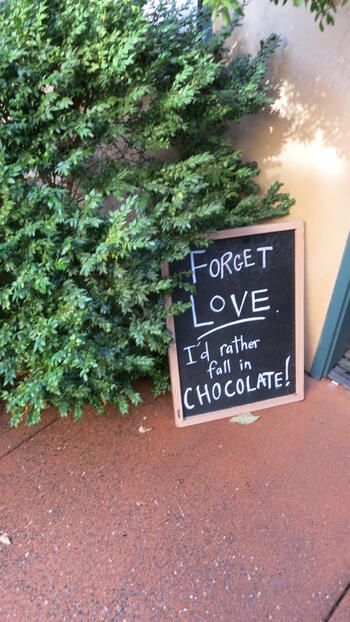 FORGET
LOVE.
I'd rather
fall in
CHOCOLATE!